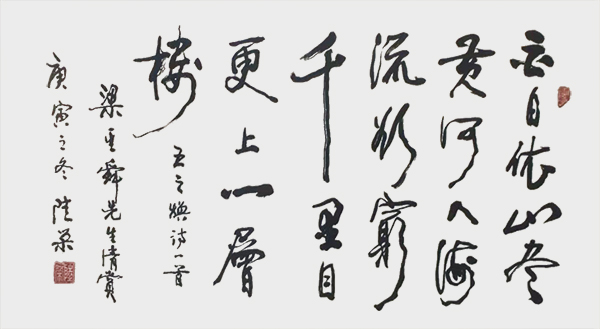 白日依山尽
黄河入海
流欲窮
千里目
更上一層
楼
王之焕诗一首
梁 舜先生清赏
庚寅之冬 陆